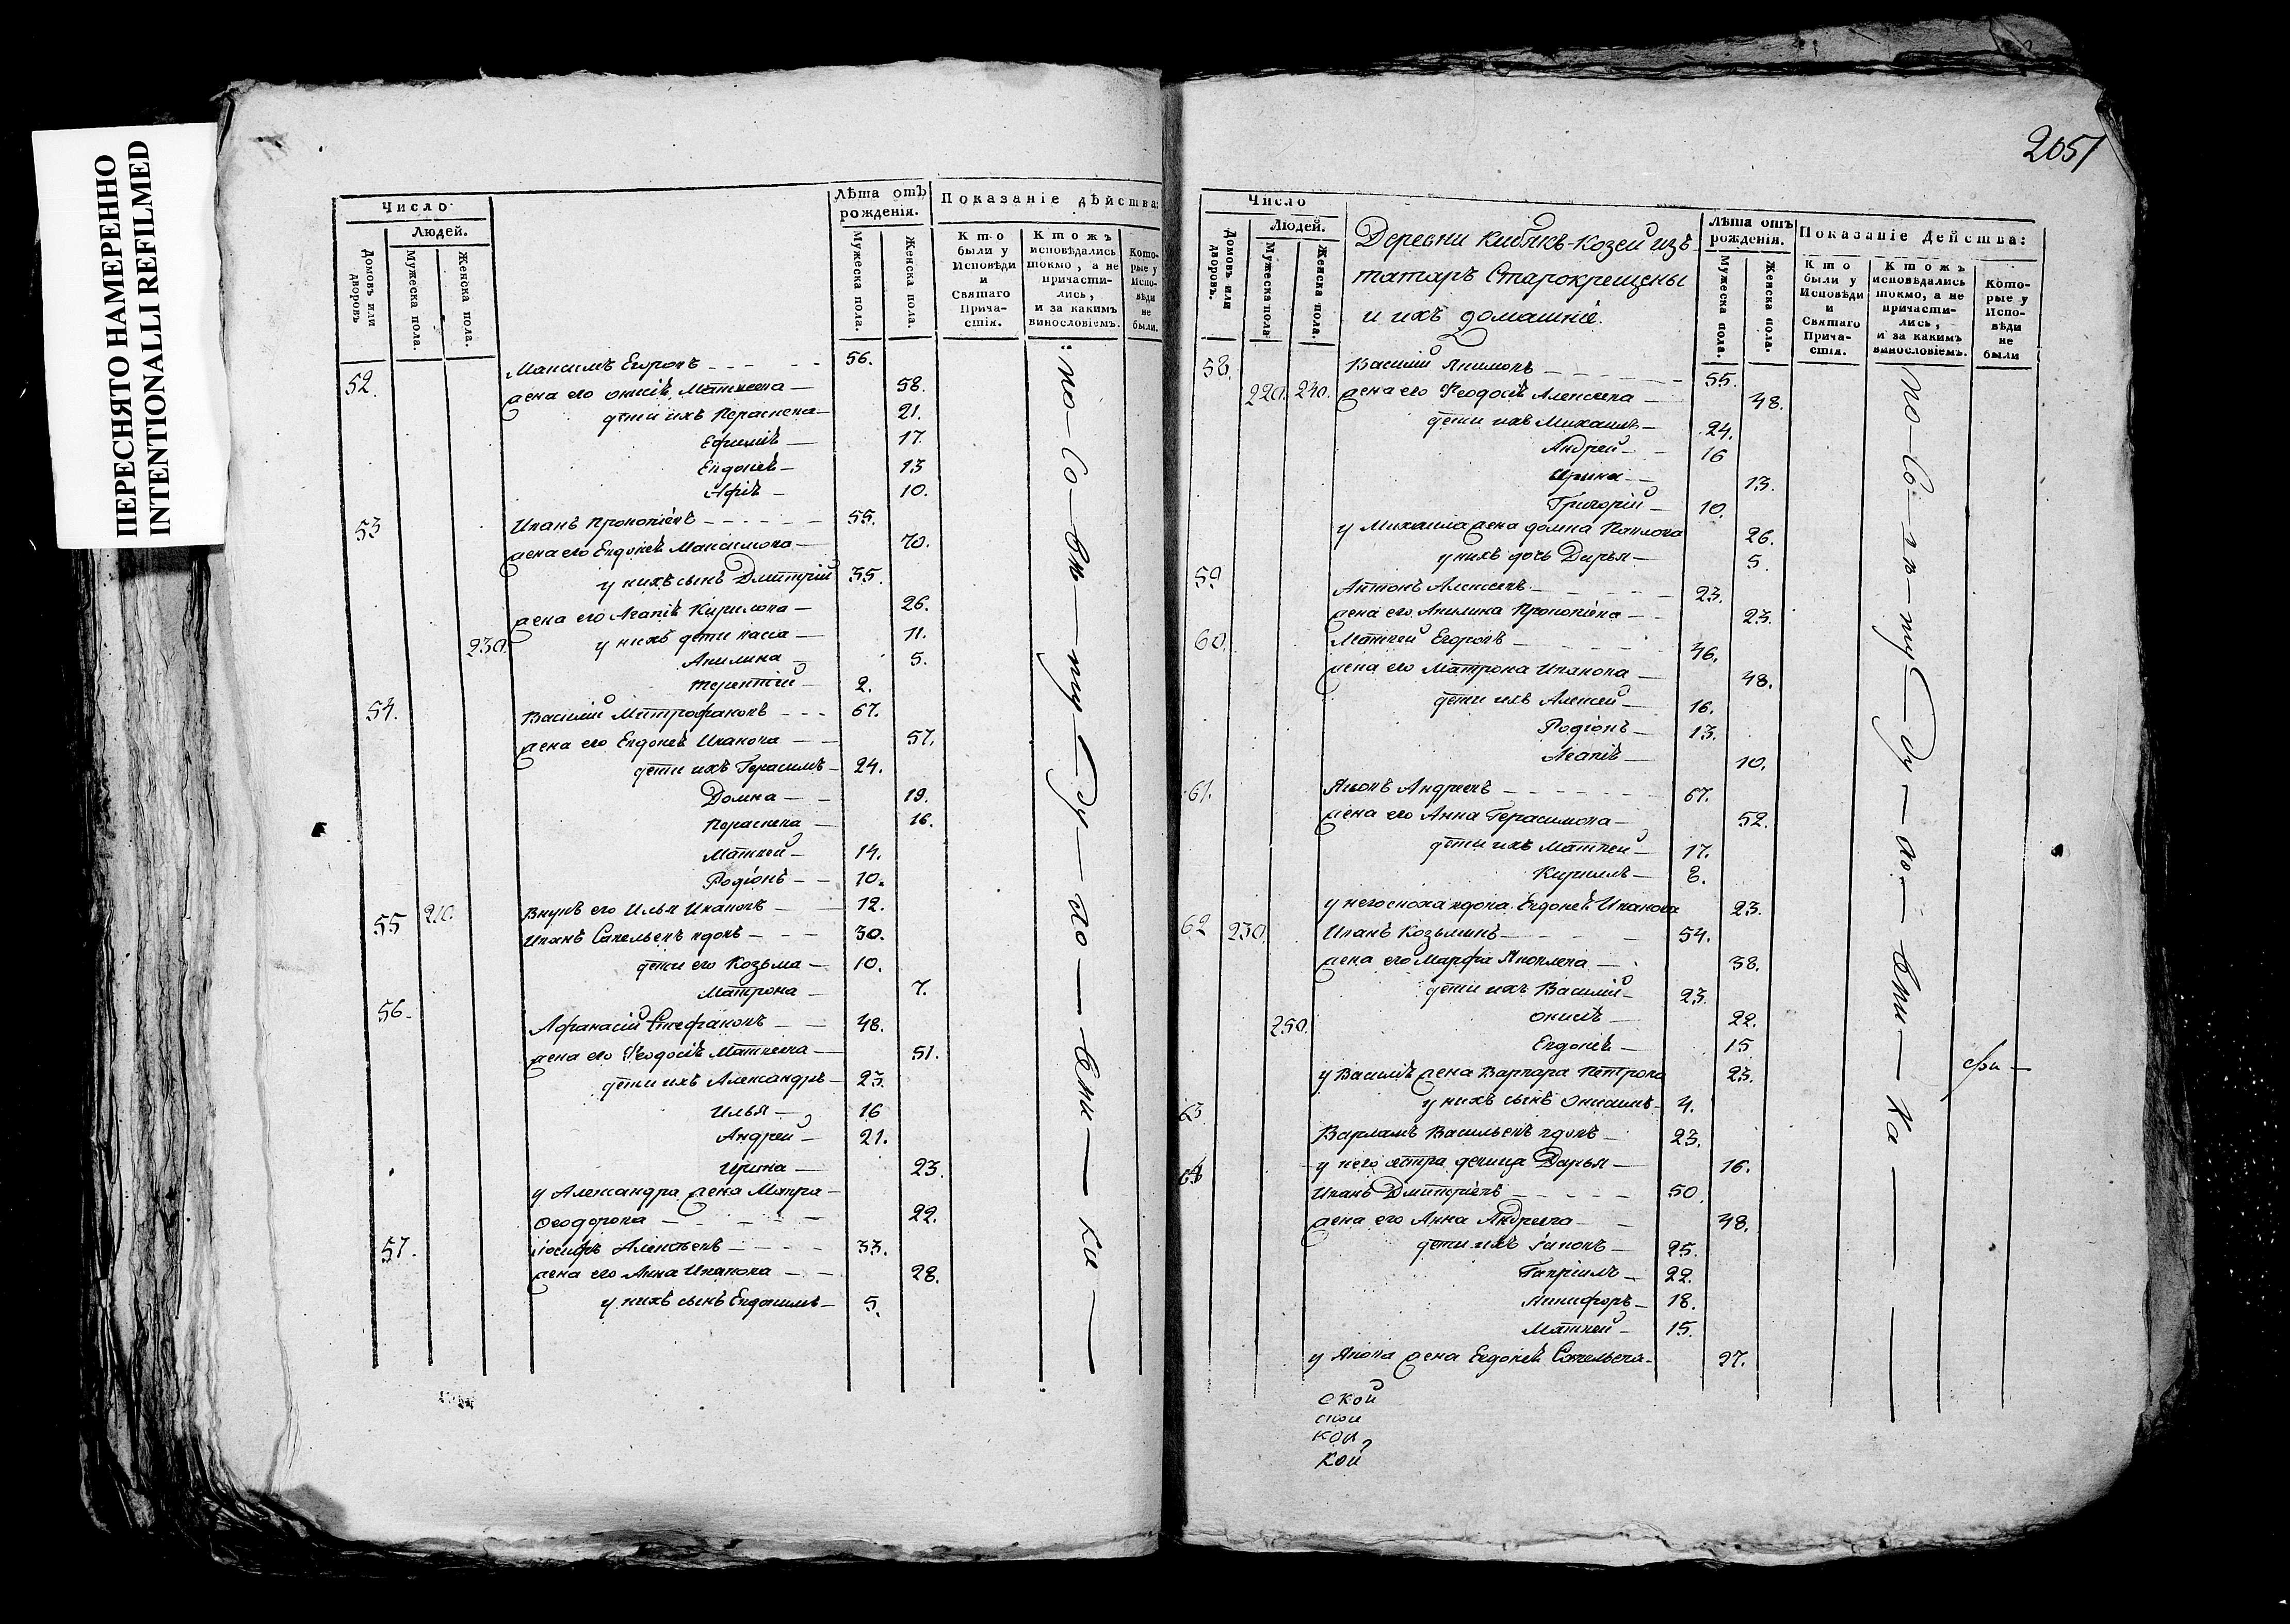 ПЕРЕСНЯТО НАМЕРЕННО
INTENTIONALLI REFILMED
Число
Людей.
Домовъ или дворовъ
Мужеска пола.
Женска пола.
Лѣта отъ рожденія.
Мужеска пола.
Женска пола.
Показаніе дѣйства:
Кто были у Исповѣди и Святаго Прича-стія.
Ктожъ исповѣдались токмо, а не причасти-лись, и за какимъ винословіемъ.
Кото-рые у Испо-вѣди не были.
52. Максимъ Егоровъ 56.
жена его Онисiѣ Матвеева 58.
дети ихъ Пераскева 21.
Ефимiѣ 17.
Евдокеѣ 13
Афiѣ 10.
53 Иванъ Прокопiевъ 55.
жена его Евдокеѣ Максимова 70.
у нихъ сынъ Дмитрiй 35.
жена его Агапiѣ Кирилова 26.
230. у нихъ дети васса 11.
Акилина 5.
терентий 2.
54. Василий Митрофановъ 67.
жена его Евдокеѣ Иванова 57.
дети ихъ Герасимъ 24.
Домна 19.
Пораскева 16.
Матвей 14.
Родiонъ 10.
210. Внукъ его Илья Ивановъ 12.
55 Иванъ Савельевъ вдовъ 30.
дети его Козьма 10.
Матрона 7.
56. Афанасiй Стефановъ 48.
жена его Феодосiѣ Матвеева 51.
дети ихъ Александръ 23.
Илья 16
Андрей 21.
ирина 23.
у Александра жена Мавра
Феодорова 22.
57. iосифъ Алексѣевъ 33.
жена его Анна Иванова 28.
у нихъ сынъ Евдокимъ 5.
то-Со-въ-ту-Ду-хо-вни-ка
2051
Число
Людей.
Домовъ или дворовъ.
Мужеска пола
Женска пола.
Деревни Кибякъ-Козей изъ
татаръ Старокрещены
и ихъ домашнiе.
Лѣта отъ рожденія.
Мужеска пола.
Женска пола.
Показаніе Действа:
Кто были у Исповѣди и Святаго Прича-стія.
Ктожъ исповѣдались токмо, а не причасти-лись, и за какимъ винословіемъ.
Кото-рые у Испо-вѣди не были
58. Василий Якимовъ 55.
220. 240. жена его Феодосiѣ Алексеева 48.
дети ихъ Михаилъ 24.
Андрей 16
Ирина 13.
Григорiй 10.
у Михаила жена домна Павлова 26.
у нихъ дочь Дарья 5.
59 Антонъ Алексеевъ 23.
жена его Акилина Прокопiева 23.
60. Матвей Егоровъ 46.
жена его Матрона Иванова 48.
дети ихъ Алексей 16.
Родiонъ 13.
Агапiѣ 10.
61. Яковъ Андреевъ 67.
жена его Анна Герасимова 52.
дети ихъ Матвей 17.
Кирилъ 8.
у него сноха вдова Евдокеѣ Иванова 23.
62 230. Иванъ Козьминъ 54.
жена его Марфа Яковлева 38.
дети ихъ Василiй 23.
250. Онисiѣ 22.
Евдокеѣ 15
у Василiѣ жена Варвара Петрова 23.
у нихъ сынъ Онисимъ 4.
63 Варламъ Васильевъ вдовъ 23.
у него сестра девица Дарья 16.
64 Иванъ Дмитрiевъ 50.
жена его Анна Андреева 48.
дети ихъ Iаковъ 25.
Гаврiилъ 22.
Никифоръ 18.
Матвей 15.
у Якова жена Евдокеѣ Савельева 27.
то-Со-въ-ту-Ду-хо-вни-ка
ской
ской
кой
кой